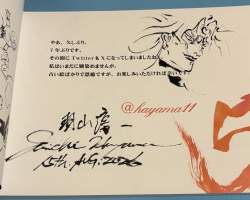 やあ、久しぶり。
7年ぶりです。
その間にTwitterもXになってしまいましたね
私はいまだに馴染めませんが。
古い絵ばかりで恐縮ですが、お楽しみいただければ幸いです
@hayama11
羽山淳一
15th. AUG. 2026